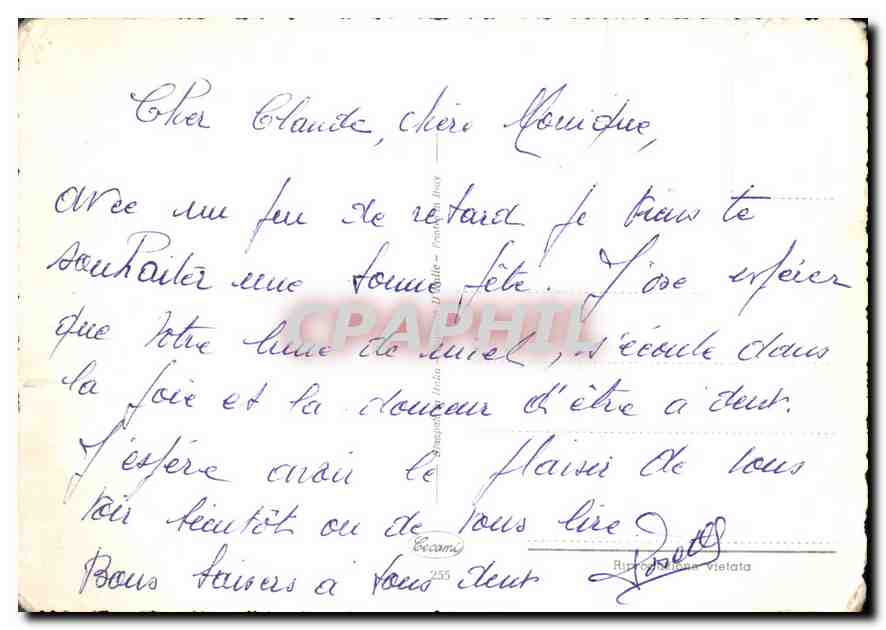 Cher Claude, chère Monique,
avec un peu de retard je viens te
souhaiter une bonne fête. J'ose espérer
que votre lune de miel, s'écoule dans
la joie et la douceur d'être à deux.
J'espère avoir le plaisir de vous
voir bientôt ou de vous lire.
Bons baisers à tous deux
CPAPHIL
Cecami
255
Riproduzione vietata